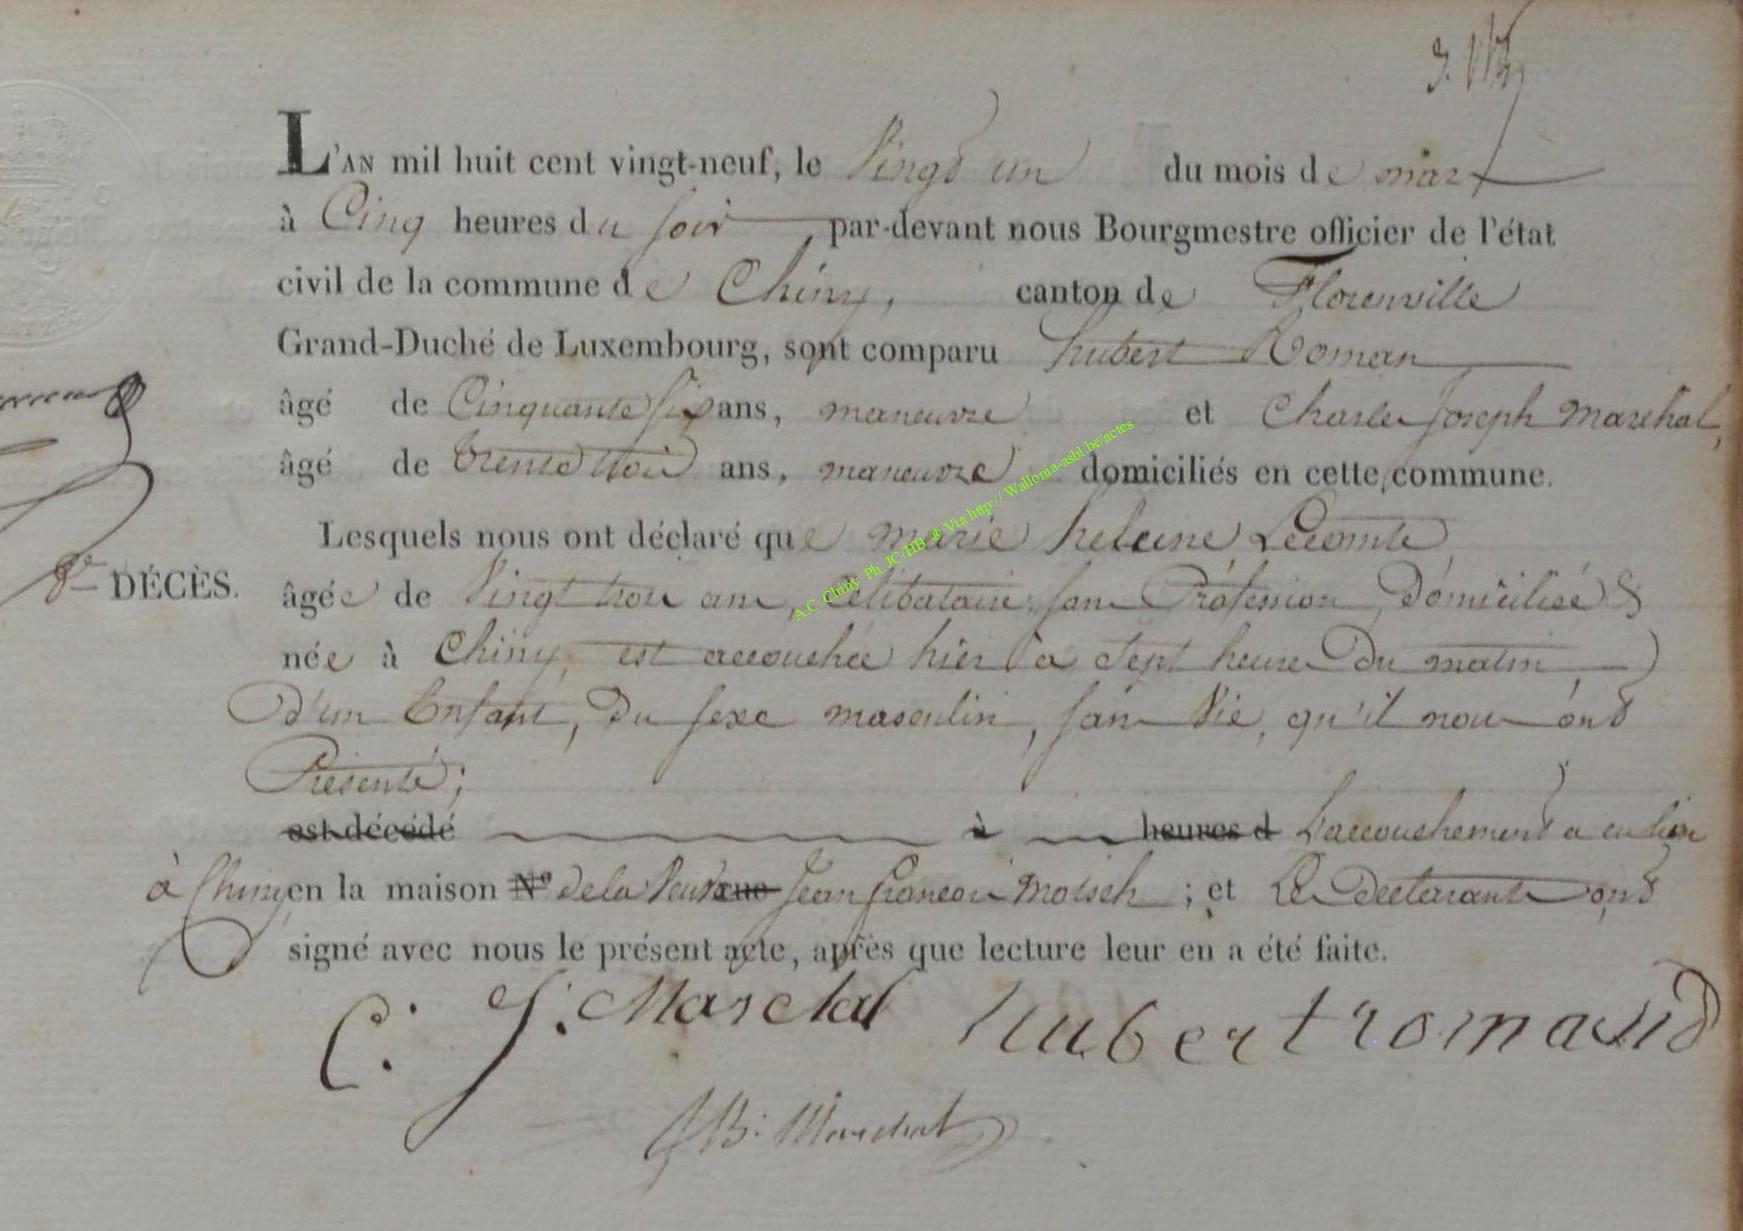 L'AN mil huit cent vingt-neuf, le Vingt un du mois de mars
à Cinq heures du soir par-devant nous Bourgmestre officier de l'état
civil de la commune de Chiny, canton de Florenville
Grand-Duché de Luxembourg, sont comparu hubert Roman
âgé de Cinquante six ans, maneuvre et Charles Joseph Marchal,
âgé de trente trois ans, maneuvre domiciliés en cette commune.
Lesquels nous ont déclaré que marie heleine Lecomte
âgée de Vingt trois ans, Célibataire sans Profession, Domiciliée &
née à Chiny, est accouchée hier à Sept heures Du matin,
D'un Enfant, Du sexe masculin, sans Vie, qu'il nous ont
Présenté;
est décédé à heures d L'accouchement a eu lieu
à Chiny en la maison N° de la Veuve rue Jean françois ; et Les Declarants ont
signé avec nous le présent acte, après que lecture leur en a été faite.
C. J. Marchal hubert romand
JB. Marchal
8e DÉCÈS.
A.C. Chiny Ph. JC/HB ® Via http:// Wallonia-asbl.be/actes